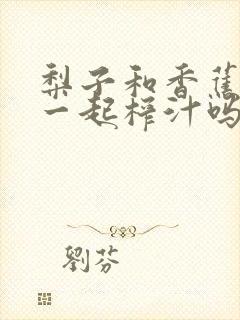 梨子和香蕉
一起榨汁吗
劉芬